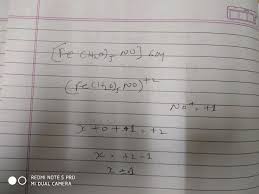 [Fe(H₂O)₅ NO] SO₄
(Fe(H₂O)₅ NO)⁺²
NO⁺ = +1
x + 0 + +1 = +2
x = +2 - 1
x = +1
REDMI NOTE 5 PRO
MI DUAL CAMERA